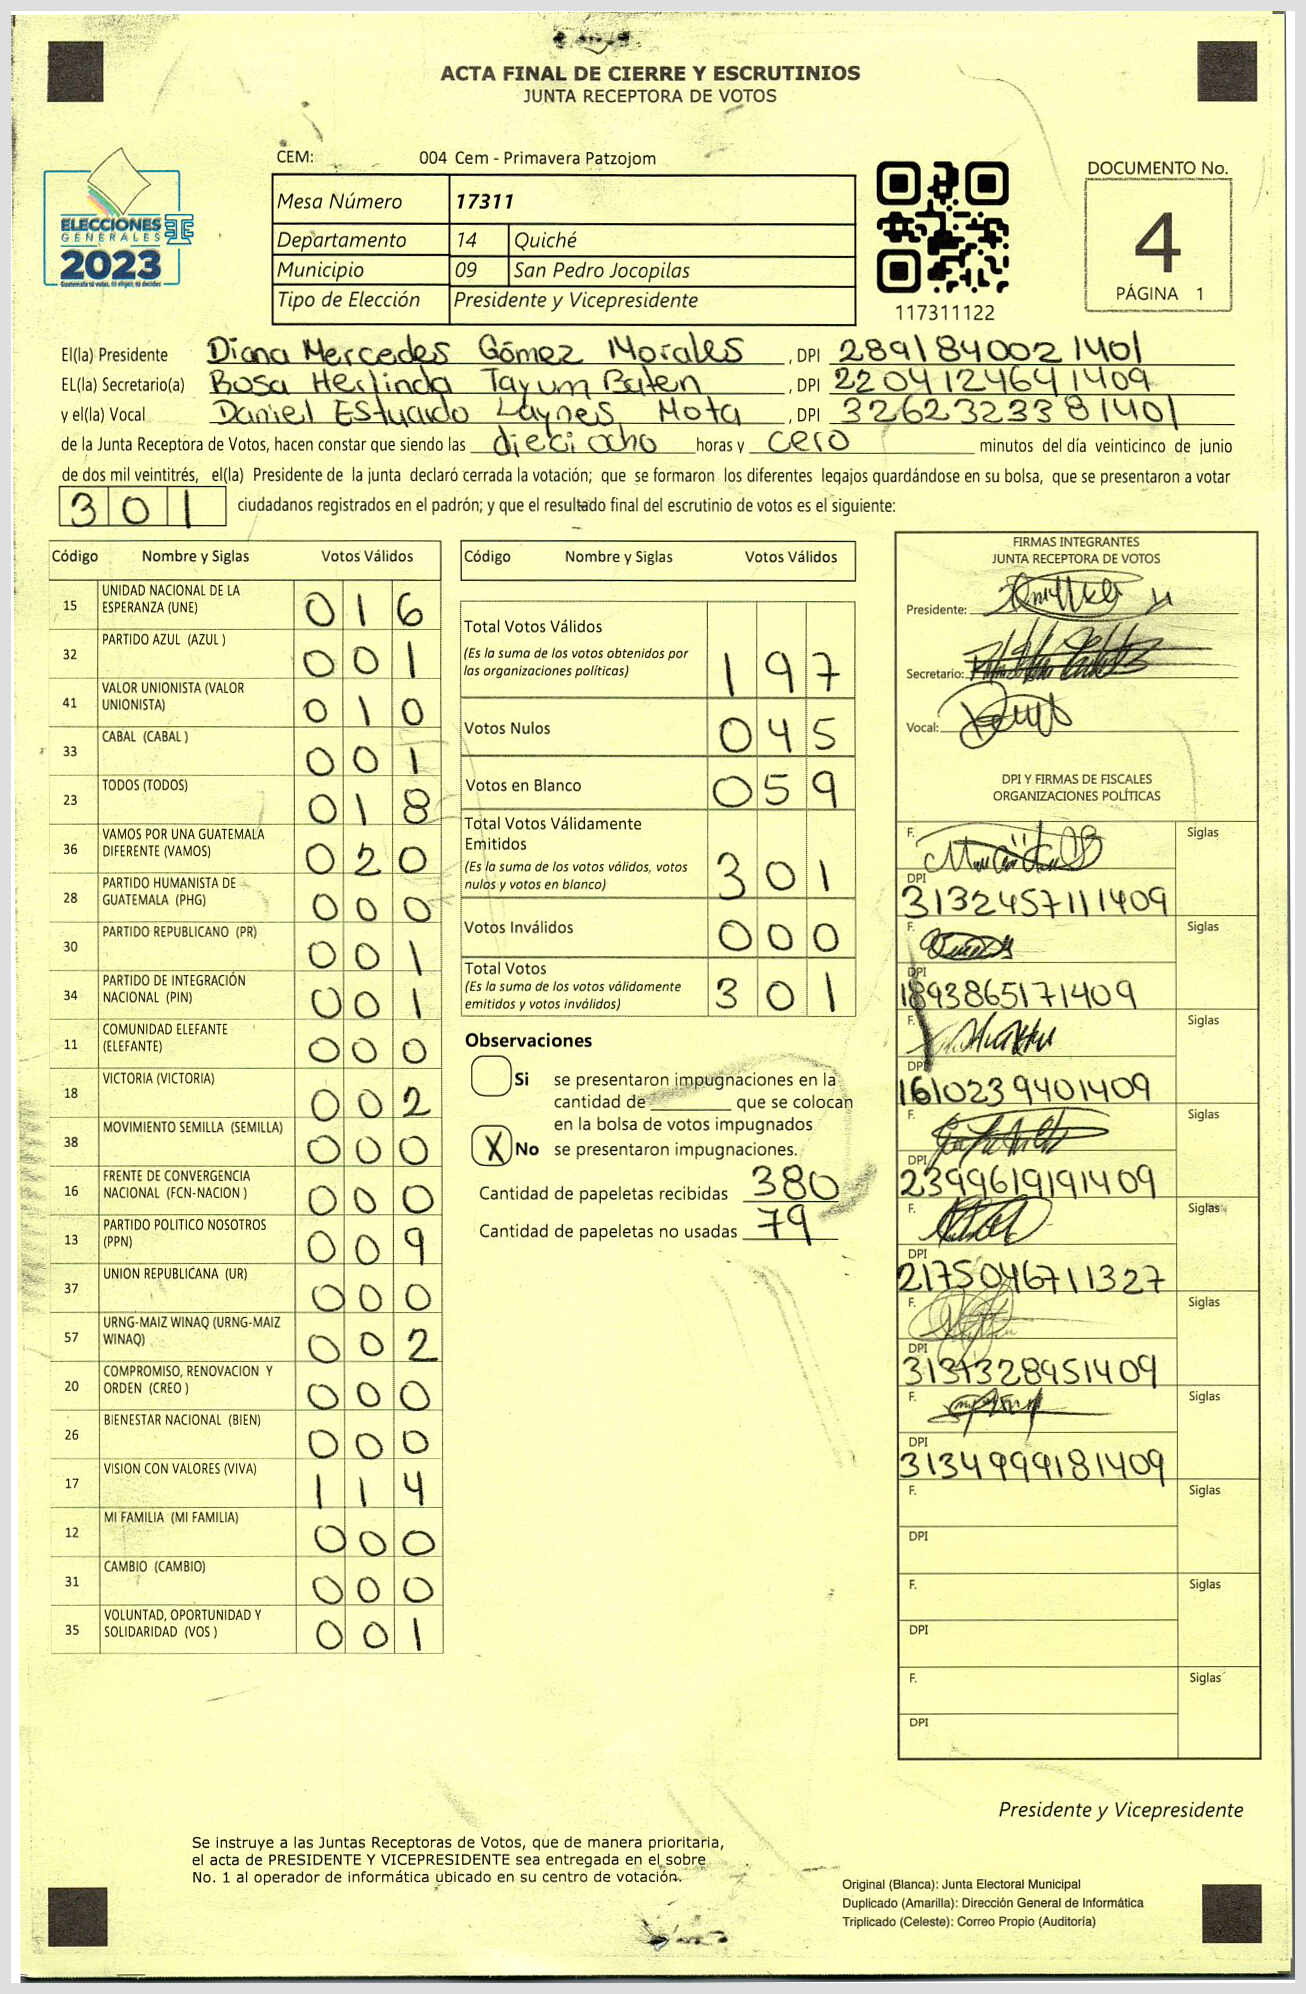 ACTA FINAL DE CIERRE Y ESCRUTINIOS
JUNTA RECEPTORA DE VOTOS
CEM: 004 Cem - Primavera Patzojom
Mesa Número 17311
Departamento 14 Quiché
Municipio 09 San Pedro Jocopilas
Tipo de Elección Presidente y Vicepresidente
ELECCIONES
GENERALES
2023
Guatemala tú votas, tú eliges, tú decides
117311122
DOCUMENTO No.
4
PÁGINA 1
El(la) Presidente Diana Mercedes Gómez Morales , DPI 2891840021401
EL(la) Secretario(a) Rosa Herlinda Tayum Baten , DPI 2204124641409
y el(la) Vocal Daniel Estuardo Laynes Mota , DPI 3262323381401
de la Junta Receptora de Votos, hacen constar que siendo las dieciocho horas y cero minutos del día veinticinco de junio
de dos mil veintitrés, el(la) Presidente de la junta declaró cerrada la votación; que se formaron los diferentes legajos guardándose en su bolsa, que se presentaron a votar
301 ciudadanos registrados en el padrón; y que el resultado final del escrutinio de votos es el siguiente:
Código Nombre y Siglas Votos Válidos
15 UNIDAD NACIONAL DE LA
ESPERANZA (UNE) 016
32 PARTIDO AZUL (AZUL ) 001
41 VALOR UNIONISTA (VALOR
UNIONISTA) 010
33 CABAL (CABAL ) 001
23 TODOS (TODOS) 018
36 VAMOS POR UNA GUATEMALA
DIFERENTE (VAMOS) 020
28 PARTIDO HUMANISTA DE
GUATEMALA (PHG) 000
30 PARTIDO REPUBLICANO (PR) 001
34 PARTIDO DE INTEGRACIÓN
NACIONAL (PIN) 001
11 COMUNIDAD ELEFANTE
(ELEFANTE) 000
18 VICTORIA (VICTORIA) 002
38 MOVIMIENTO SEMILLA (SEMILLA) 000
16 FRENTE DE CONVERGENCIA
NACIONAL (FCN-NACION ) 000
13 PARTIDO POLITICO NOSOTROS
(PPN) 009
37 UNION REPUBLICANA (UR) 000
57 URNG-MAIZ WINAQ (URNG-MAIZ
WINAQ) 002
20 COMPROMISO, RENOVACION Y
ORDEN (CREO ) 000
26 BIENESTAR NACIONAL (BIEN) 000
17 VISION CON VALORES (VIVA) 114
12 MI FAMILIA (MI FAMILIA) 000
31 CAMBIO (CAMBIO) 000
35 VOLUNTAD, OPORTUNIDAD Y
SOLIDARIDAD (VOS ) 001
Código Nombre y Siglas Votos Válidos
Total Votos Válidos
(Es la suma de los votos obtenidos por
las organizaciones políticas) 197
Votos Nulos 045
Votos en Blanco 059
Total Votos Válidamente
Emitidos
(Es la suma de los votos válidos, votos
nulos y votos en blanco) 301
Votos Inválidos 000
Total Votos
(Es la suma de los votos válidamente
emitidos y votos inválidos) 301
Observaciones
Si se presentaron impugnaciones en la
cantidad de ________ que se colocan
en la bolsa de votos impugnados
X No se presentaron impugnaciones.
Cantidad de papeletas recibidas 380
Cantidad de papeletas no usadas 79
FIRMAS INTEGRANTES
JUNTA RECEPTORA DE VOTOS
Presidente:
Secretario:
Vocal:
DPI Y FIRMAS DE FISCALES
ORGANIZACIONES POLÍTICAS
F. Siglas
DPI
3132457111409
F. Siglas
DPI
1893865171409
F. Siglas
DPI
1610239401409
F. Siglas
DPI
2399619191409
F. Siglas
DPI
2175046711327
F. Siglas
DPI
3137328951409
F. Siglas
DPI
3134999181409
F. Siglas
DPI
F. Siglas
DPI
F. Siglas
DPI
Presidente y Vicepresidente
Se instruye a las Juntas Receptoras de Votos, que de manera prioritaria,
el acta de PRESIDENTE Y VICEPRESIDENTE sea entregada en el sobre
No. 1 al operador de informática ubicado en su centro de votación.
Original (Blanca): Junta Electoral Municipal
Duplicado (Amarilla): Dirección General de Informática
Triplicado (Celeste): Correo Propio (Auditoría)